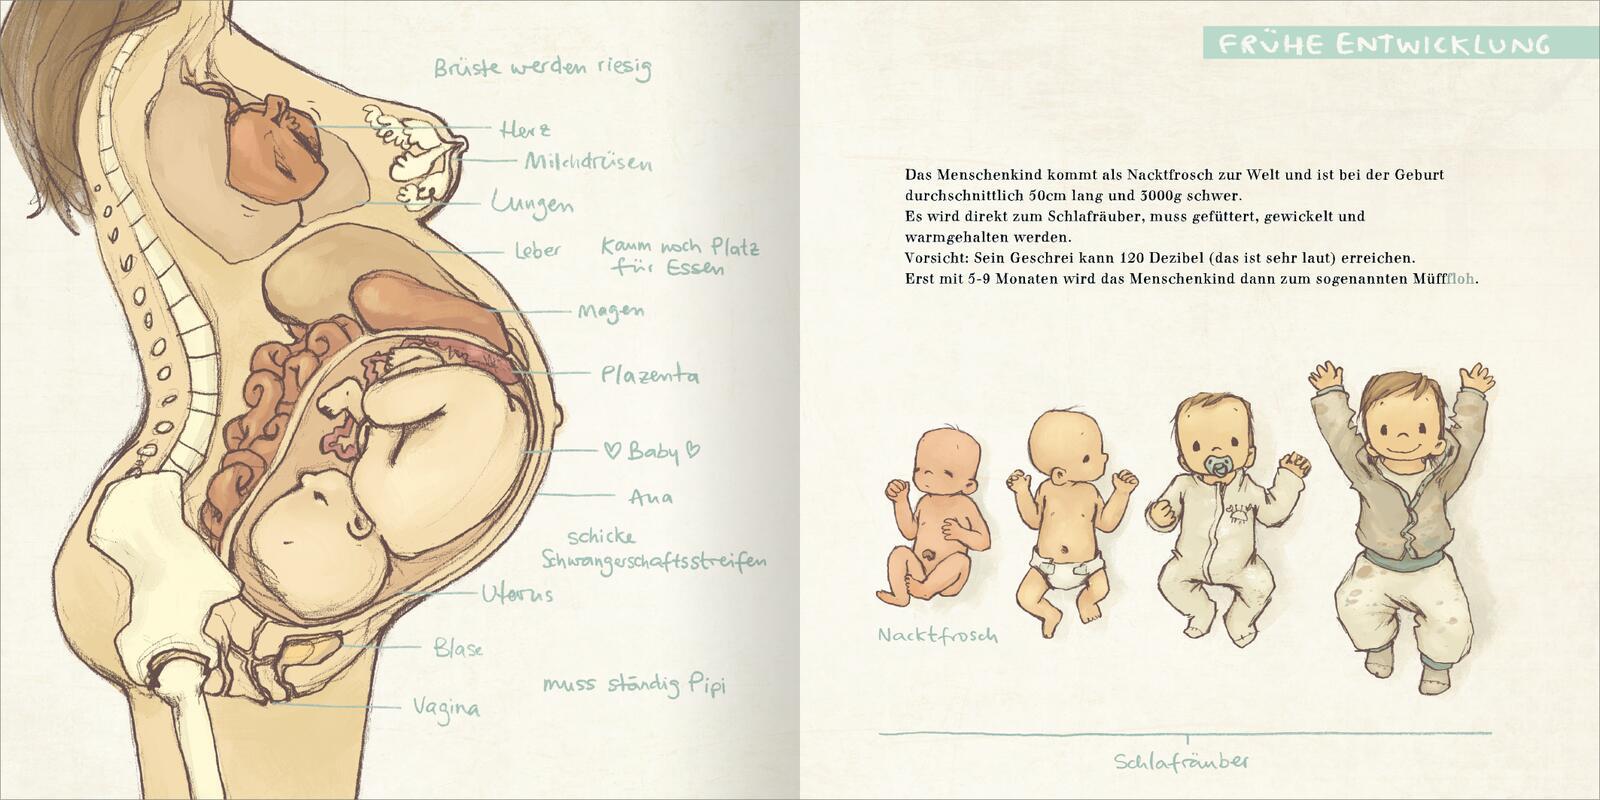 Brüste werden riesig
Herz
Milchdrüsen
Lungen
Leber
Kaum noch Platz
für Essen
Magen
Plazenta
♡ Baby ♡
Aua
schicke
Schwangerschaftsstreifen
Uterus
Blase
muss ständig Pipi
Vagina
FRÜHE ENTWICKLUNG
Das Menschenkind kommt als Nacktfrosch zur Welt und ist bei der Geburt
durchschnittlich 50cm lang und 3000g schwer.
Es wird direkt zum Schlafräuber, muss gefüttert, gewickelt und
warmgehalten werden.
Vorsicht: Sein Geschrei kann 120 Dezibel (das ist sehr laut) erreichen.
Erst mit 5-9 Monaten wird das Menschenkind dann zum sogenannten Müfffloh.
Nacktfrosch
Schlafräuber